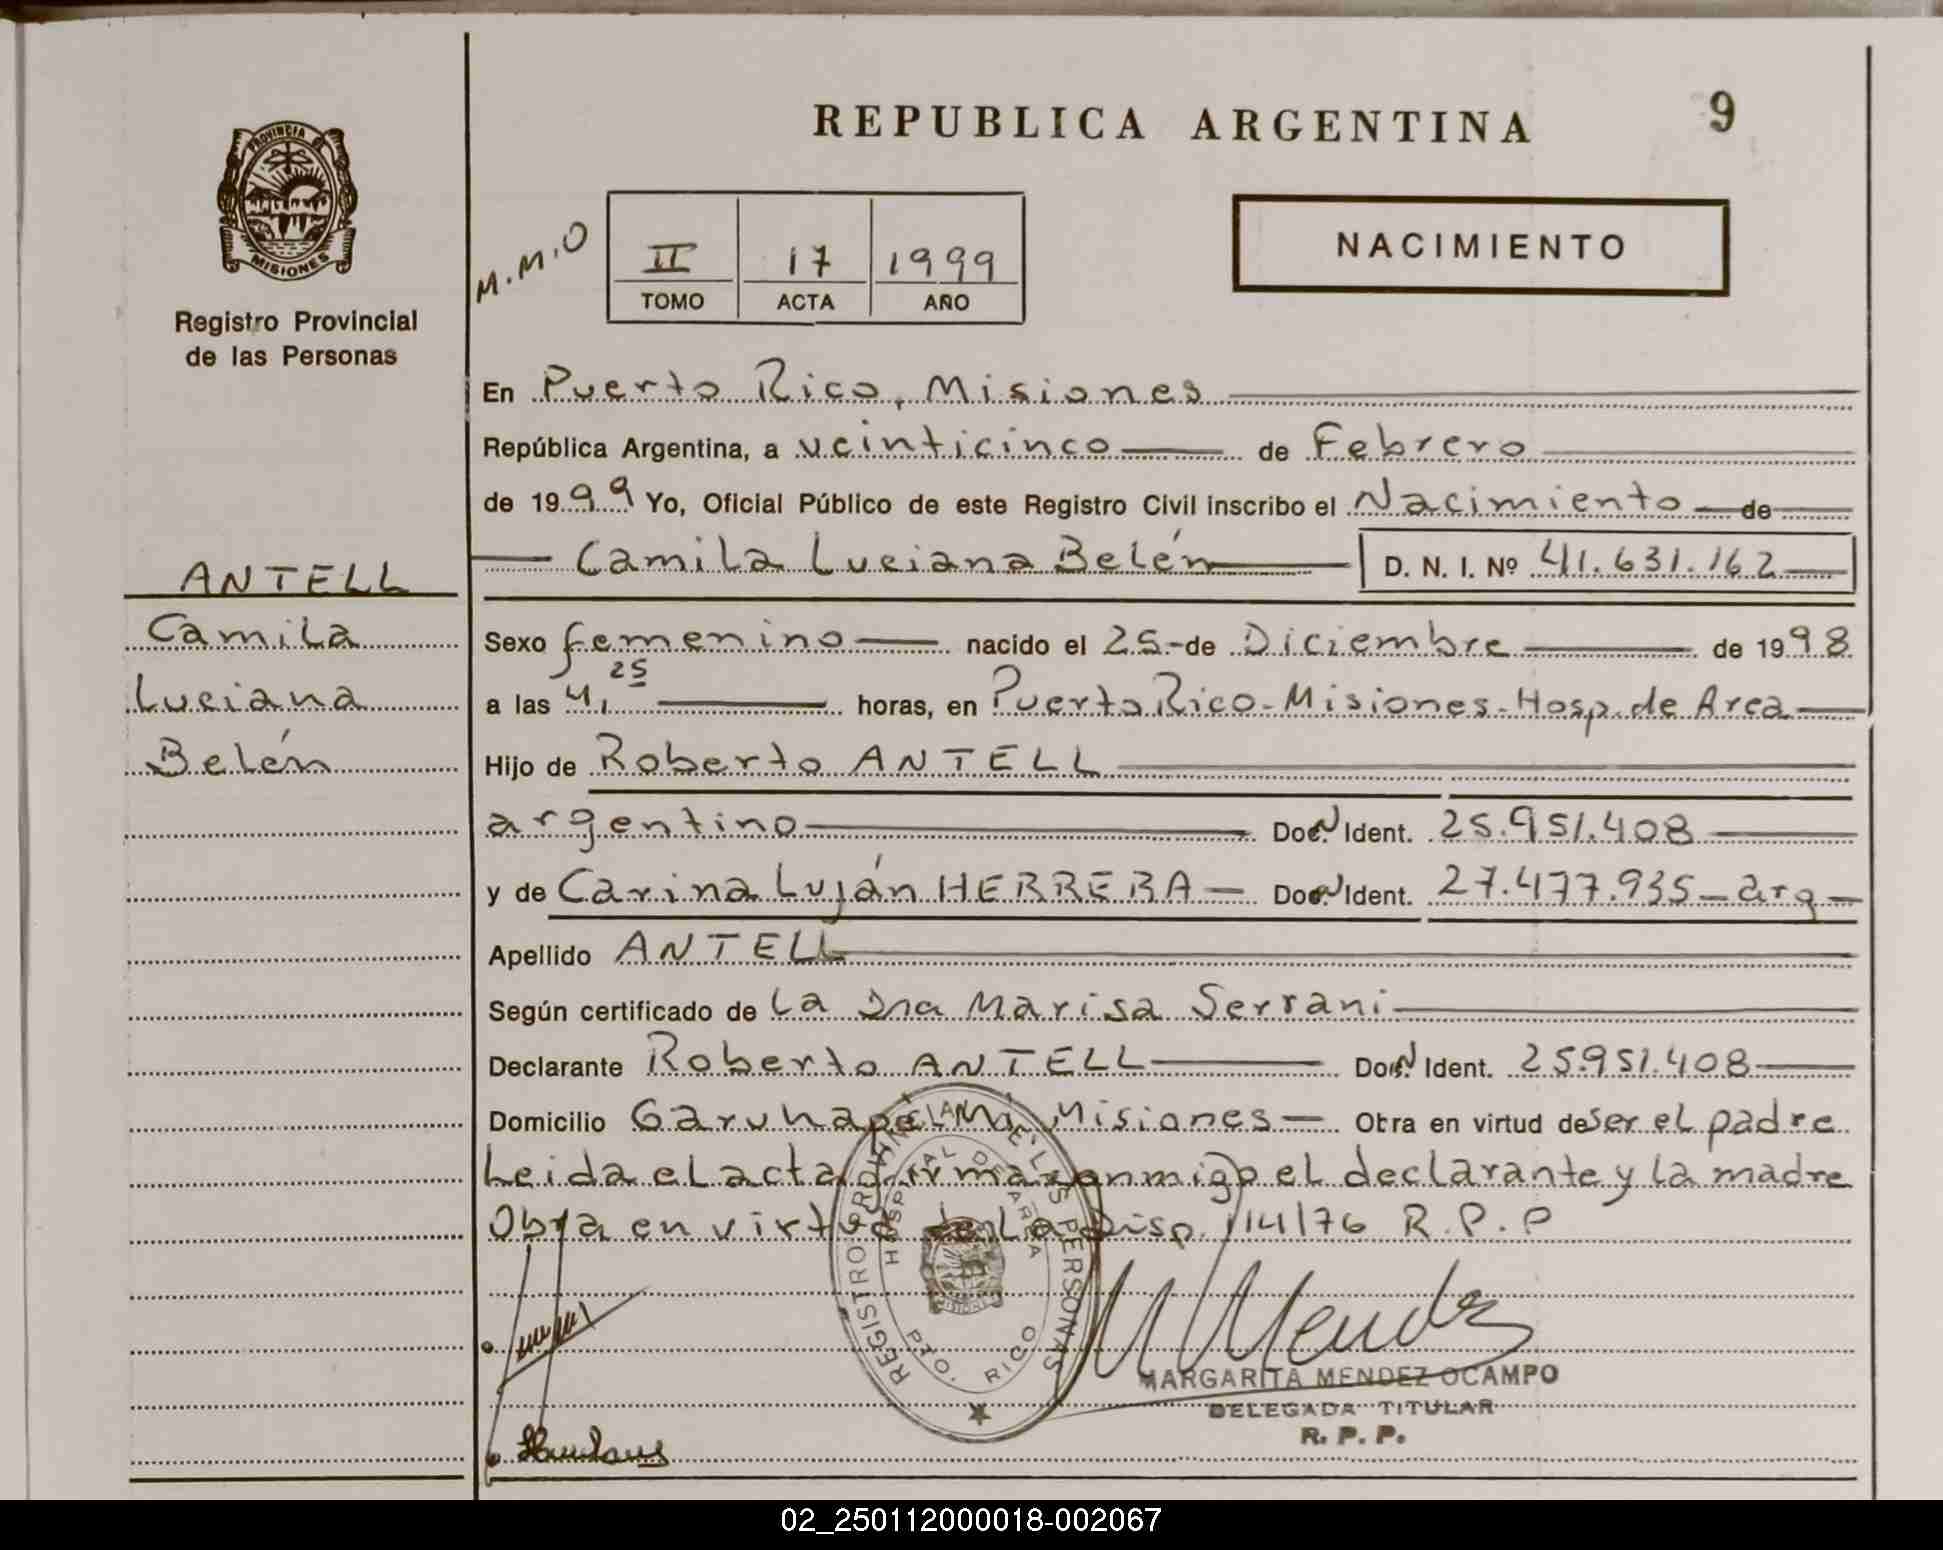 REPUBLICA ARGENTINA
9
PROVINCIA
MISIONES
Registro Provincial
de las Personas
M.M.O
II 17 1999
TOMO ACTA AÑO
NACIMIENTO
En Puerto Rico, Misiones
República Argentina, a veinticinco de Febrero
de 1999 Yo, Oficial Público de este Registro Civil inscribo el Nacimiento de
Camila Luciana Belén D. N. I. Nº 41.631.162
ANTELL
Camila
Luciana
Belén
Sexo femenino nacido el 25-de Diciembre de 1998
a las 4,25 horas, en Puerto Rico-Misiones-Hosp. de Area
Hijo de Roberto ANTELL
argentino Doc. Ident. 25.951.408
y de Carina Luján HERRERA Doc. Ident. 27.477.935-arg
Apellido ANTELL
Según certificado de La Dra Marisa Serrani
Declarante Roberto ANTELL Doc. Ident. 25.951.408
Domicilio Garuhapé Mí Misiones Obra en virtud de ser el padre
Leida el acta firma conmigo el declarante y la madre
Obra en virtud de La Disp. 114/76 R.P.P
REGISTRO PROVINCIAL DE LAS PERSONAS
HOSPITAL DE AREA
PTO. RICO
M Mendez
MARGARITA MENDEZ OCAMPO
DELEGADA TITULAR
R. P. P.
02_250112000018-002067